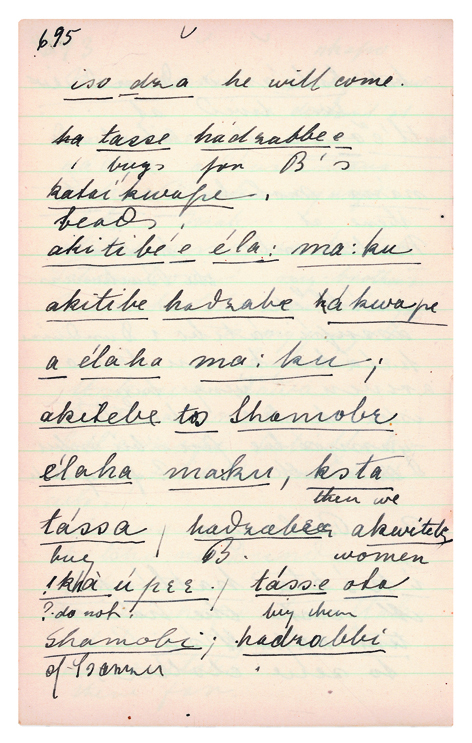 695
iso dza he will come.
ha tasse hádzabbee
i buys for B's
katai kwape.
beads;
akitibé e éla: ma:ku
akitibe hadzabe kákwape
a élaha ma:ku;
akitebe to Shamobe
élaha maku, ksta
then we
tássa, hadzabee akwitebe
buy B. women
!khà úpee, tásse oto
? do not. buy them
Shamobi; hadzabbi
of